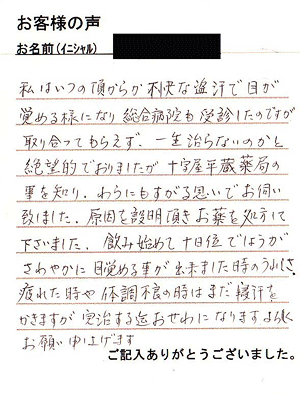 お客様の声
お名前(イニシャル)
私はいつの頃からか不快な盗汗で目が
覚める様になり総合病院も受診したのですが
取り合ってもらえず、一生治らないのかと
絶望的でおりましたが十字屋平蔵薬局の
事を知り、わらにもすがる思いでお伺い
致しました、原因を説明頂きお薬を処方して
下さいました、飲み始めて十日位でしょうが
さわやかに目覚める事が出来ました時のうれしさ、
疲れた時や体調不良の時はまだ寝汗を
かきますが完治する迄おせわになりますよろしく
お願い申上げます
ご記入ありがとうございました。